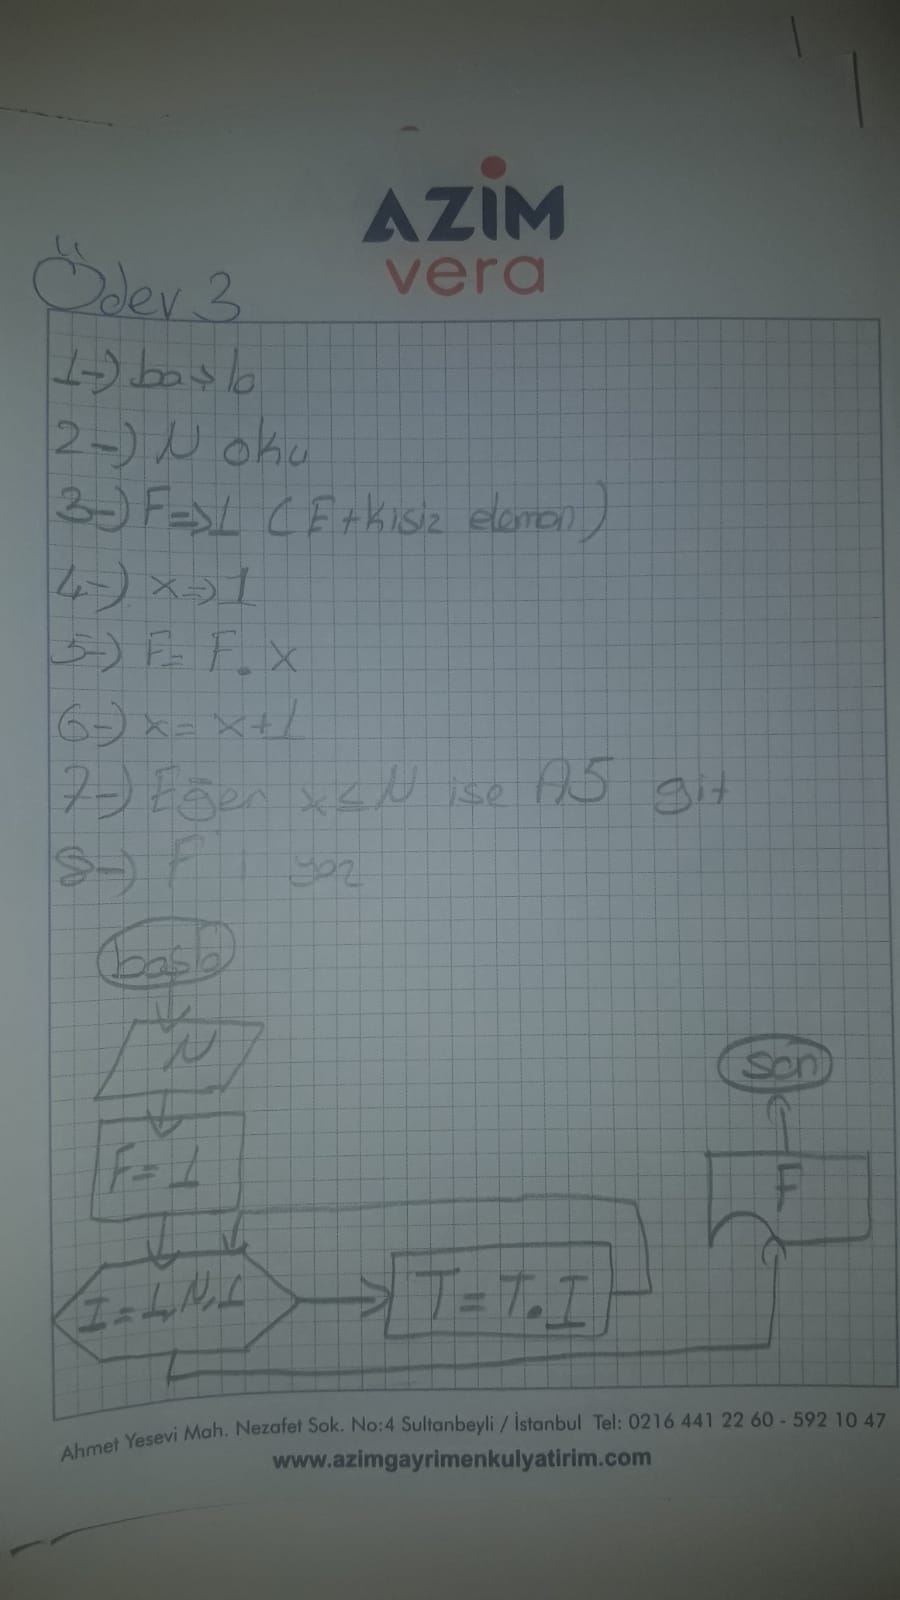 AZİM
vera
Ödev 3
1-) başla
2-) N oku
3-) F=>1 (Etkisiz eleman)
4-) x=>1
5-) F= F.x
6-) x= x+1
7-) Eğer x≤N ise A5 git
8-) F ı yaz
başla
N
F=1
I=1,N,1
T=T.I
F
son
Ahmet Yesevi Mah. Nezafet Sok. No:4 Sultanbeyli / İstanbul Tel: 0216 441 22 60 - 592 10 47
www.azimgayrimenkulyatirim.com